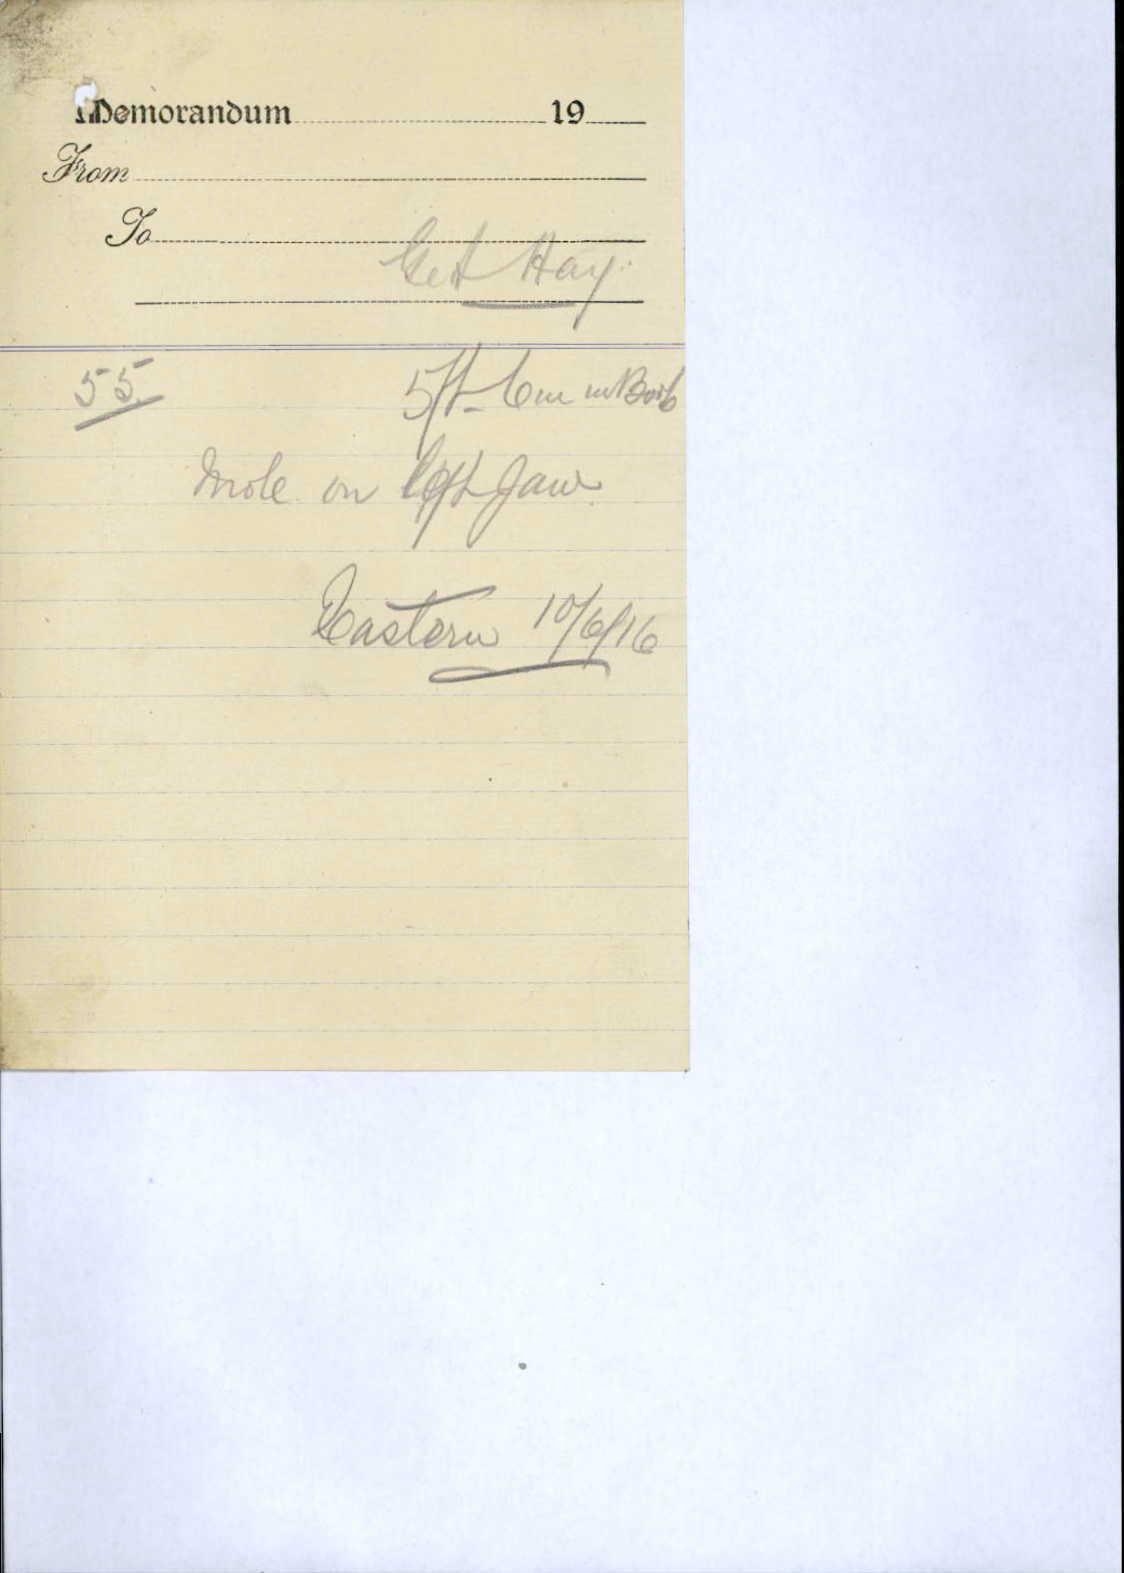 Memorandum 19
From
To
Hay
55 5ft 6in in Boots
Mole on left Jaw
Eastern 10/6/16